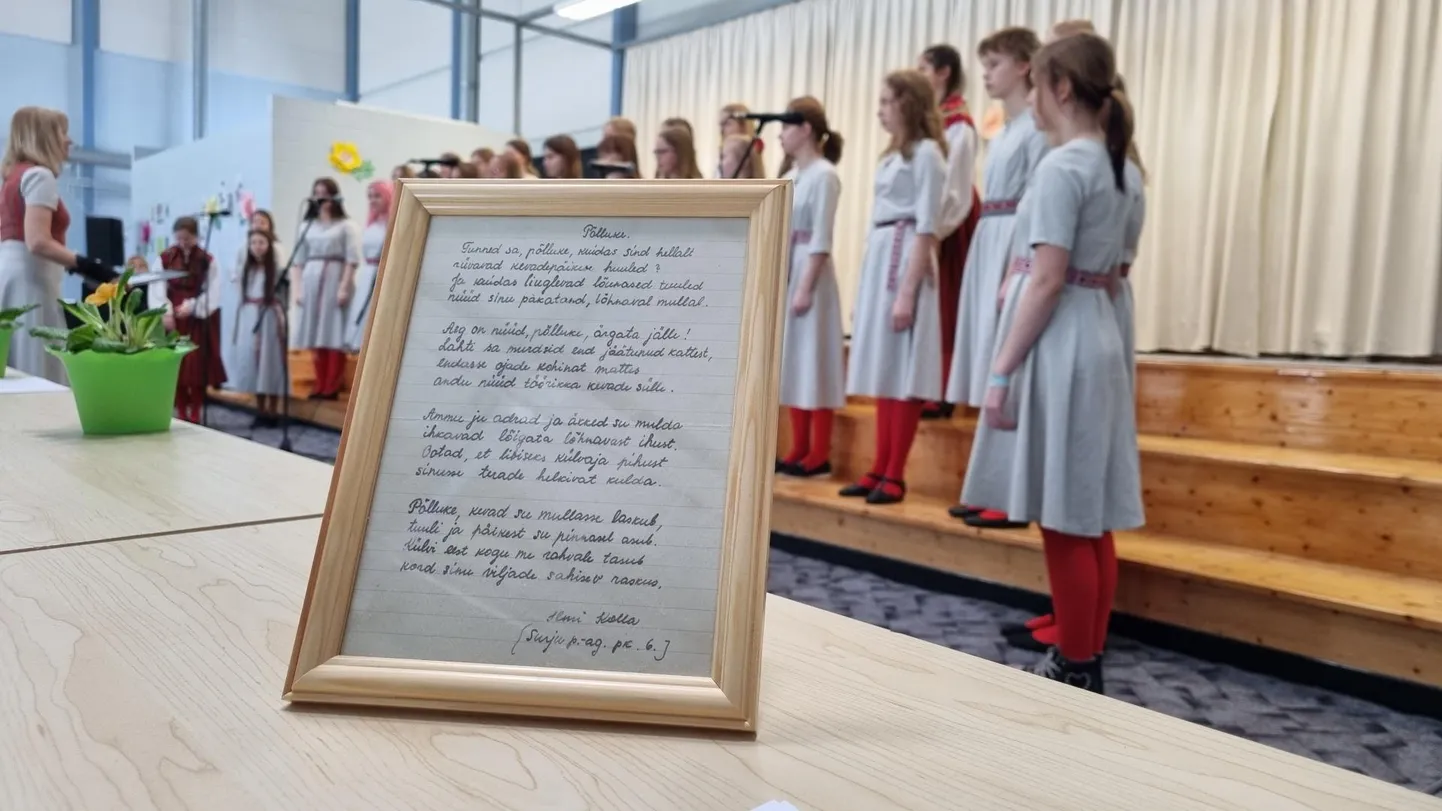 Põlluke.
Tunned sa, põlluke, kuidas sind hellalt
riivavad kevadpäikese huuled?
Ja kuidas liuglevad lõunased tuuled
nüüd sinu pakatand, lõhnaval mullal.
Aeg on nüüd, põlluke, ärgata jälle!
Lahti sa murdsid end jäätunud kattest,
endasse ojade kohinat mattes
andu nüüd töörikka kevade sülle.
Ammu ju adrad ja äkked su mulda
ihkavad lõigata lõhnavast ihust.
Ootad, et libiseks külvaja pihust
sinusse terade helkivat kulda.
Põlluke, kevad su mullasse laskub,
tuuli ja päikest su pinnasel asub.
Külvi eest kogu me rahvale tasub
kord sinu viljade sahisev raskus.
Ilmi Kolla
(Surju p.-ag. pk. 6.)